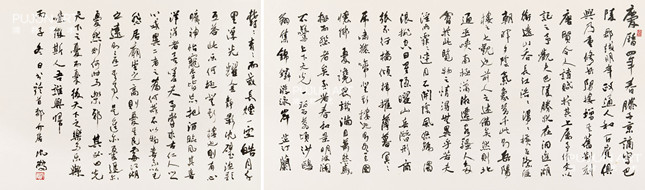 慶曆四年春滕子京謫守巴
陵郡越明年政通人和百廢俱
興乃重修岳陽樓增其舊制刻
唐賢今人詩賦於其上屬予作文以
記之予觀夫巴陵勝狀在洞庭一湖
銜遠山吞長江浩浩湯湯橫無際涯
朝暉夕陰氣象萬千此則岳陽
樓之大觀也前人之述備矣然則北
通巫峽南極瀟湘遷客騷人多
會於此覽物之情得無異乎若夫
淫雨霏霏連月不開陰風怒號濁
浪排空日星隱曜山岳潛形商
旅不行檣傾楫摧薄暮冥冥
虎嘯猿啼登斯樓也則有去國
懷鄉憂讒畏譏滿目蕭然感
極而悲者矣至若春和景明波瀾
不驚上下天光一碧萬頃沙鷗
翔集錦鱗游泳岸芷汀蘭
郁郁青青而或長煙一空皓月千
里浮光耀金靜影沉璧漁歌
互答此樂何極登斯樓也則有心
曠神怡寵辱皆忘把酒臨風其喜
洋洋者矣嗟夫予嘗求古仁人之心
或異二者之為何哉不以物喜不以己
悲居廟堂之高則憂其民處江湖
之遠則憂其君是進亦憂退亦
憂然則何時而樂耶其必曰先
天下之憂而憂後天下之樂而樂歟
噫微斯人吾誰與歸
丙子冬日書於首都